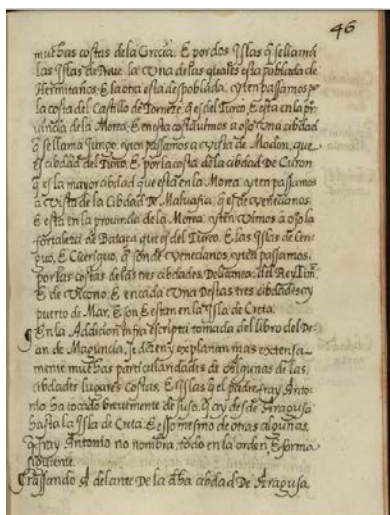 46
muchas costas de la Grecia. E por dos Yslas q̃ se llamã
las Yslas de Preue la vna de las quales esta poblada de
Hermitaños: E la otra esta despoblada. yten passamos p̲
la costa del Castillo de Tornese q̃ es del Turco E esta en la pro
uincia de la Morea. E en esta costa vimos a ojo vna cibdad
q̃ se llama Junço. yten passamos a vista de Modon, que
es cibdad del Turco. E por la costa de la cibdad De Curon
q̃ es la mayor cibdad que esta en la Morea. yten passamos
a vista de la Cibdad De Maluasia, q̃ es de venecianos.
E está en la prouincia de la Morea. yten vimos a ojo la
fortaleza de que es del Turco. E las Yslas de Ceri-
guo, E Ceriguo, q̃ son de venecianos, yten passamos,
por las costas de las tres cibdades De
E de E en cada vna Destas tres cibdades ay
puerto de Mar. E son E estan en la Ysla de Creta.
En la Addicion infra escripta tomada del libro del De-
an de Maguncia, se dizen y explanan mas extensa-
mente muchas particularidades de Algunas de las
cibdades lugares Costas, E yslas q̃ el padre fray Anto-
nio ha tocado breuemente de suso, q̃ ay desde Aragusa
hasta la Ysla de Creta. E esso mesmo de otras algunas,
q̃ fray Antonio no nombra, todo en la orden E forma
siguiente.
Passando adelante De la dha cibdad De Aragusa,